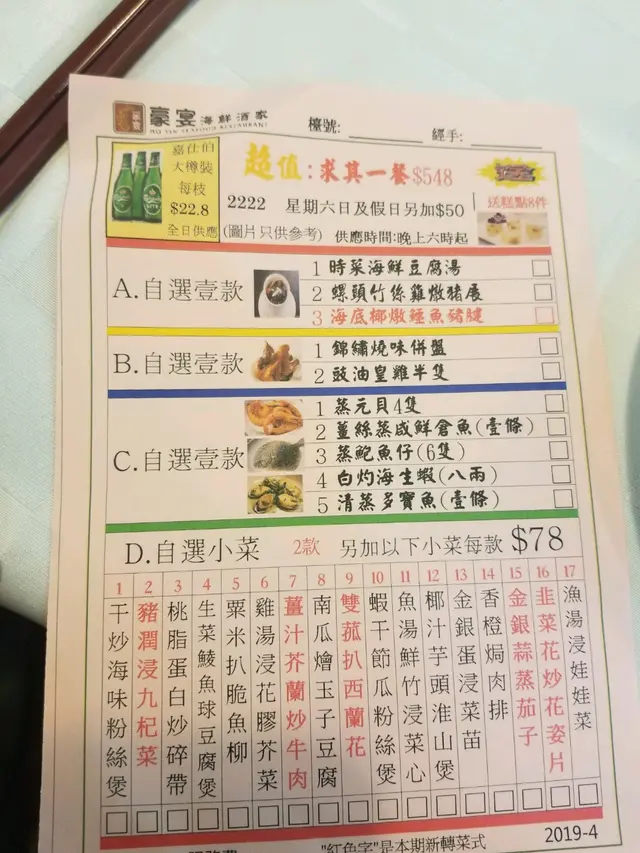 豪宴海鮮酒家
HO YIN SEAFOOD RESTAURANT
檯號:
經手:
嘉仕伯
大樽裝
每枝
$22.8
全日供應
超值:求其一餐$548
2222 星期六日及假日另加$50
(圖片只供參考) 供應時間:晚上六時起
送糕點8件
A.自選壹款
1 時菜海鮮豆腐湯
2 螺頭竹絲雞燉豬展
3 海底椰燉鱷魚豬腱
B.自選壹款
1 錦繡燒味併盤
2 豉油皇雞半隻
C.自選壹款
1 蒸元貝4隻
2 薑絲蒸咸鮮倉魚(壹條)
3 蒸鮑魚仔(6隻)
4 白灼海生蝦(八兩)
5 清蒸多寶魚(壹條)
D.自選小菜 2款 另加以下小菜每款 $78
1 干炒海味粉絲煲
2 豬潤浸九杞菜
3 桃脂蛋白炒碎帶
4 生菜鯪魚球豆腐煲
5 粟米扒脆魚柳
6 雞湯浸花膠芥菜
7 薑汁芥蘭炒牛肉
8 南瓜燴玉子豆腐
9 雙菰扒西蘭花
10 蝦干節瓜粉絲煲
11 魚湯鮮竹浸菜心
12 椰汁芋頭淮山煲
13 金銀蛋浸菜苗
14 香橙焗肉排
15 金銀蒜蒸茄子
16 韭菜花炒花姿片
17 魚湯浸娃娃菜
"紅色字"是本期新轉菜式
2019-4